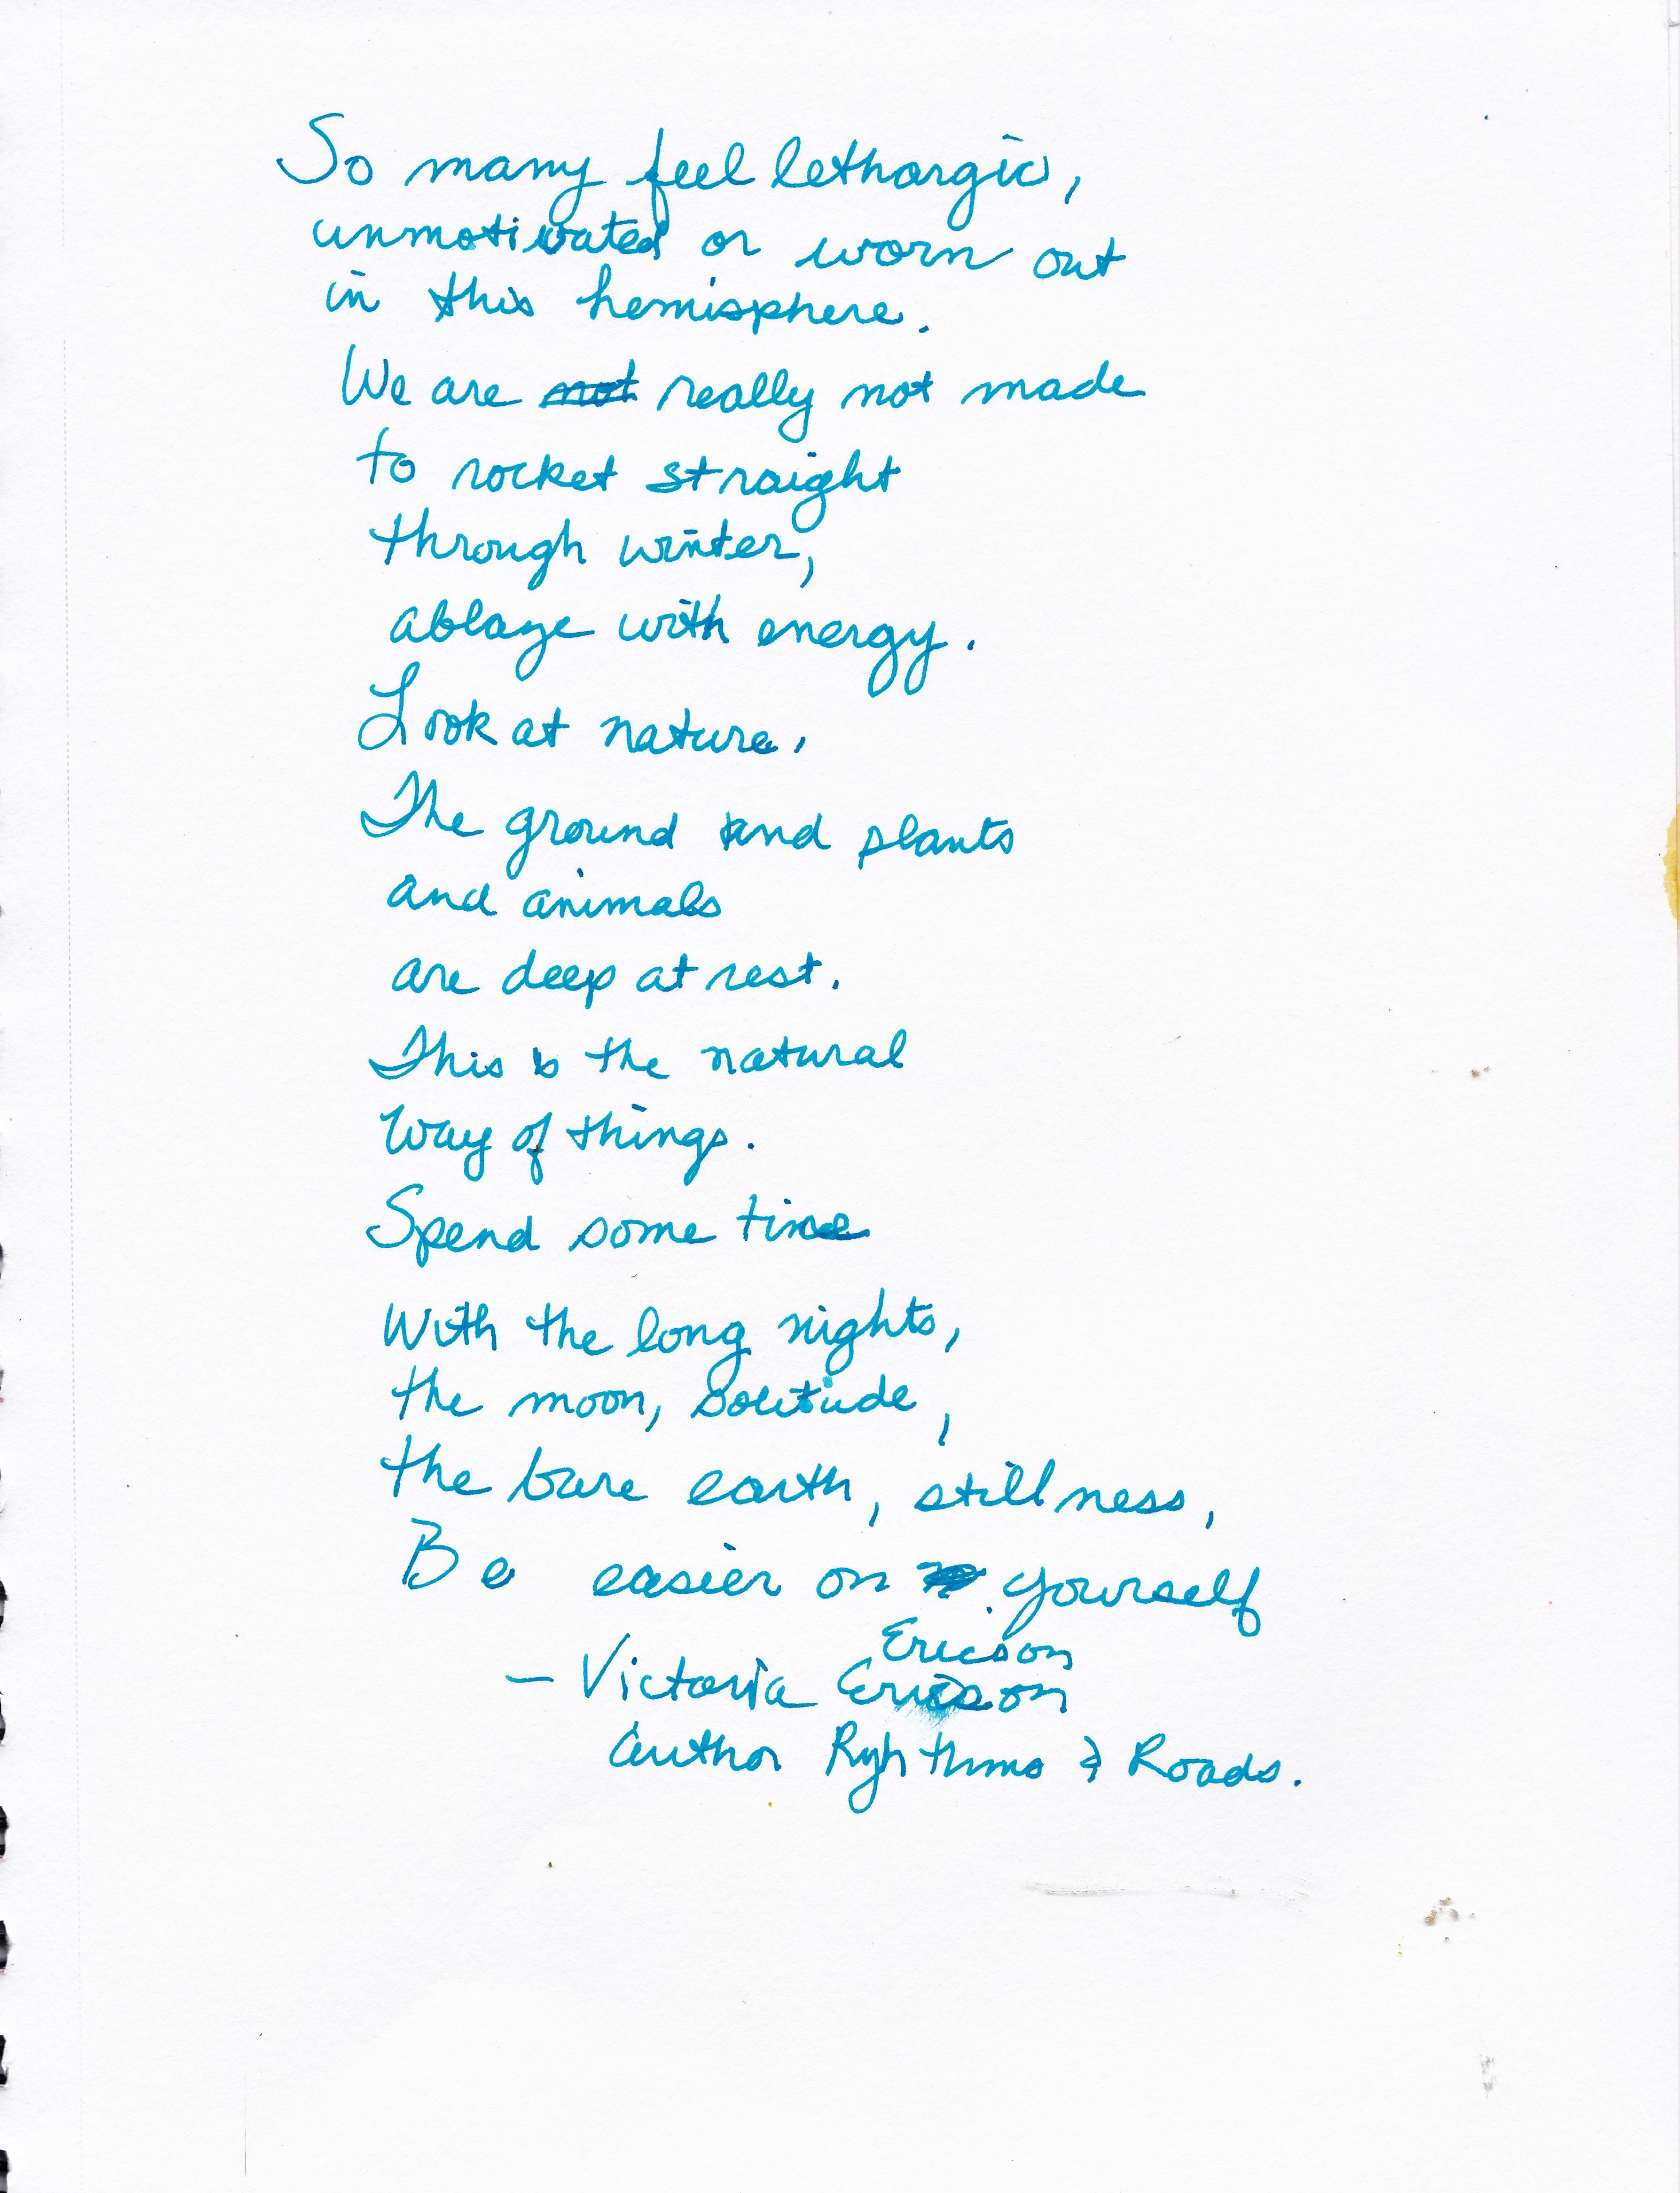 So many feel lethargic,
unmotivated or worn out
in this hemisphere.
We are not really not made
to rocket straight
through winter,
ablaze with energy.
Look at nature.
The ground and plants
and animals
are deep at rest.
This is the natural
Way of things.
Spend some time
With the long nights,
the moon, solitude,
the bare earth, stillness,
Be easier on yourself
Ericson
— Victoria Ericson
Author Ryhthms & Roads.